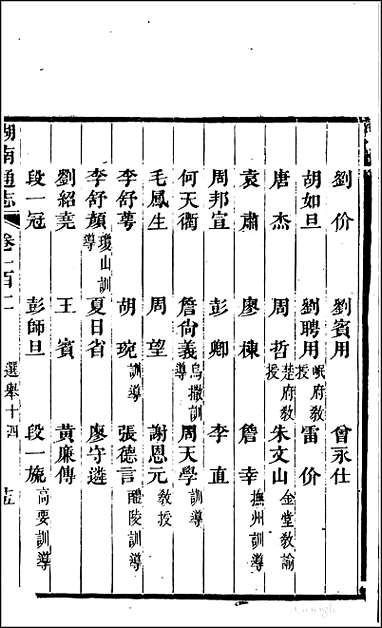 劉价 劉賓用 曾永仕
胡如旦 劉聘用岷府教授 雷价
唐杰 周哲楚府教授 朱文山金堂教諭
袁肅 廖棟 詹幸撫州訓導
周邦宣 彭卿 李直
何天衢 詹尙義烏撒訓導 周天學訓導
毛鳳生 周望 謝恩元教授
李舒蕚 胡琬訓導 張德言醴陵訓導
李舒顏瓊山訓導 夏日省 廖守遴
劉紹堯 王賓 黃廉傳
段一冠 彭師旦 段一旒高要訓導
湖南通志 卷一百 選舉十四